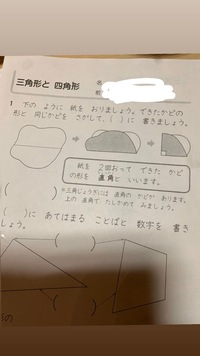 三角形と 四角形
名
1 下の ように 紙を おりましょう。できたかどの
形と 同じかどを さがして、( )に 書きましょう。
紙を 2回おって できた かど
の形を 直角と いいます。
( )
※三角じょうぎには 直角の かどが あります。
上の 直角で たしかめて みましょう。
( )に あてはまる ことばと 数字を 書き
しょう。
( ) ( )